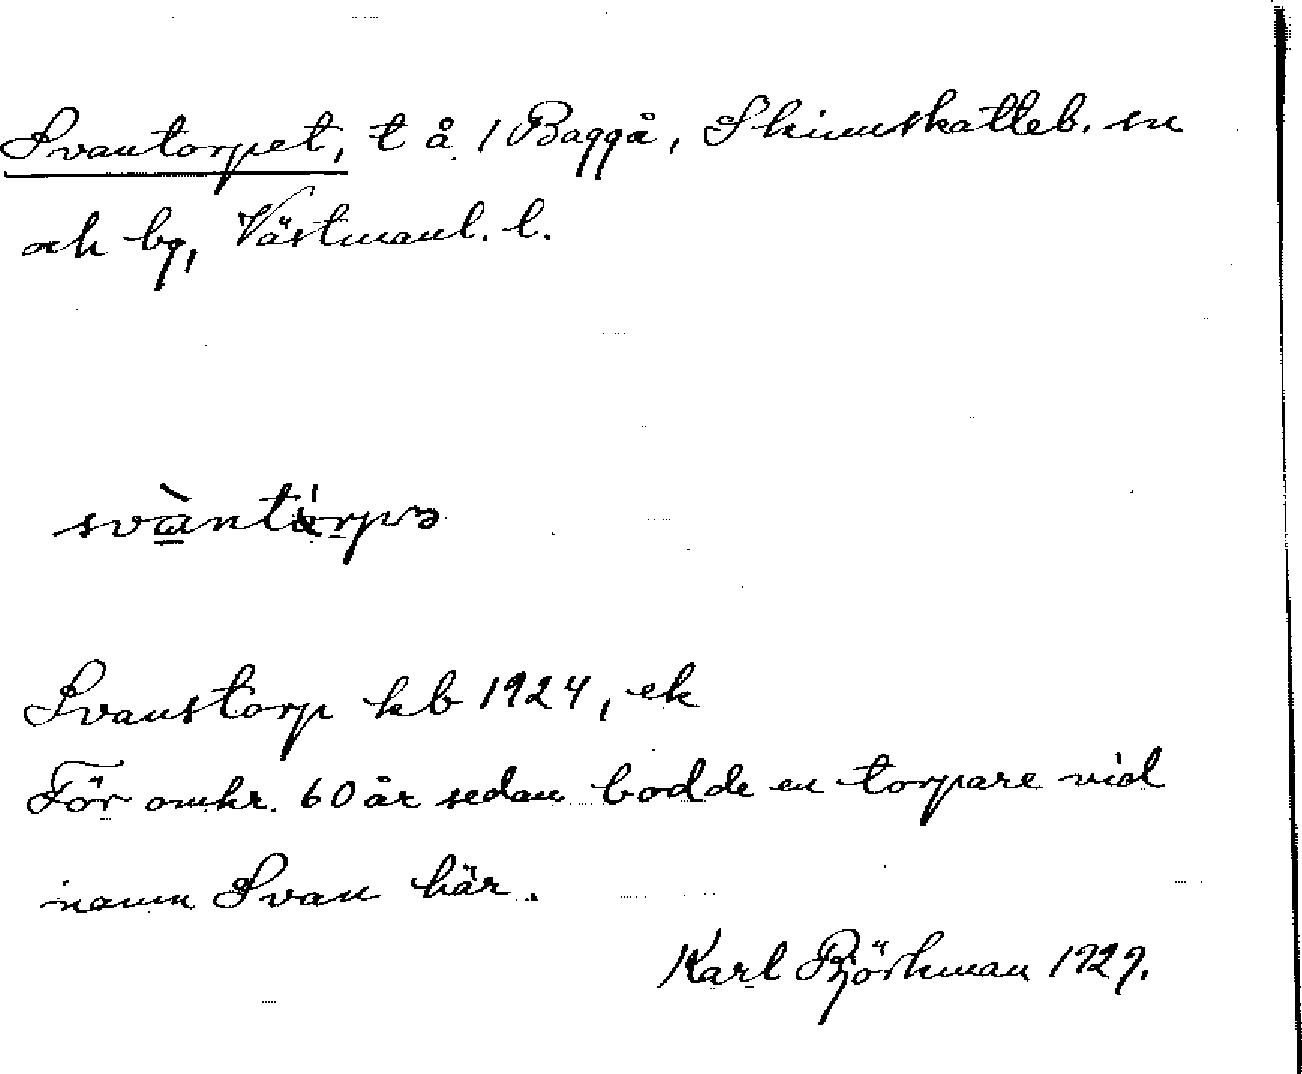 Svantorpet, t å 1 Baggå, Skinnskatteb. sn
och bg, Västmanl. l.
svàntårpə
Svanstorp kb 1924, ek
För omkr. 60 år sedan bodde en torpare vid
namn Svan här.
Karl Björkman 1929.